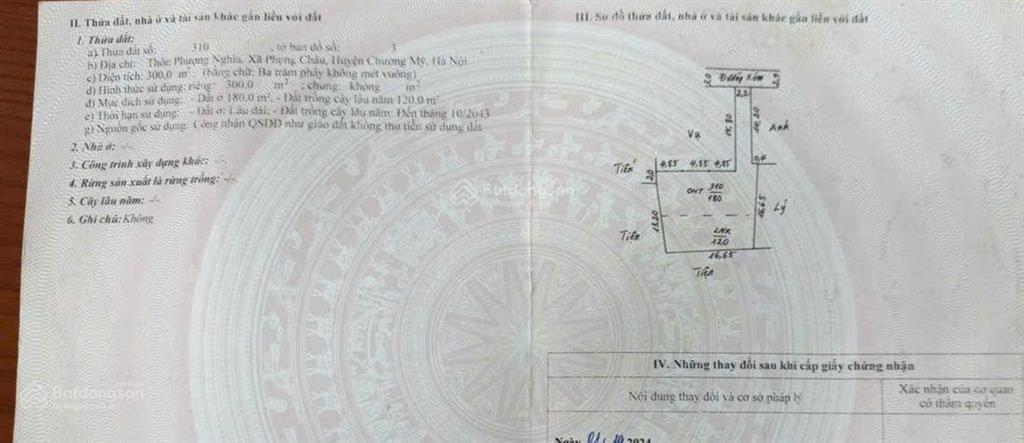 II. Thửa đất, nhà ở và tài sản khác gắn liền với đất
1. Thửa đất:
a) Thửa đất số: 310 , tờ bản đồ số: 3
b) Địa chỉ: Thôn Phượng Nghĩa, Xã Phụng Châu, Huyện Chương Mỹ, Hà Nội
c) Diện tích: 300,0 m², (bằng chữ: Ba trăm phẩy không mét vuông)
d) Hình thức sử dụng: riêng: 300.0 m² ; chung: không m²
đ) Mục đích sử dụng: - Đất ở 180.0 m², - Đất trồng cây lâu năm 120.0 m²
e) Thời hạn sử dụng: - Đất ở: Lâu dài; - Đất trồng cây lâu năm: Đến tháng 10/2043
g) Nguồn gốc sử dụng: Công nhận QSDĐ như giao đất không thu tiền sử dụng đất
2. Nhà ở: -/-
3. Công trình xây dựng khác: -/-
4. Rừng sản xuất là rừng trồng: -/-
5. Cây lâu năm: -/-
6. Ghi chú: Không
III. Sơ đồ thửa đất, nhà ở và tài sản khác gắn liền với đất
2,0 Đường Xóm 2,9
2,2
Vụ 14,20 Anh
Tiến 4,85 4,55 4,85 0,4
2,0 ONT 310
180
16,65 Lý
Tiến 13,20
LNK
120
16,65
Tiến
IV. Những thay đổi sau khi cấp giấy chứng nhận
Nội dung thay đổi và cơ sở pháp lý
Xác nhận của cơ quan
có thẩm quyền
Batdongsan
Batdongsan
Batdongsan